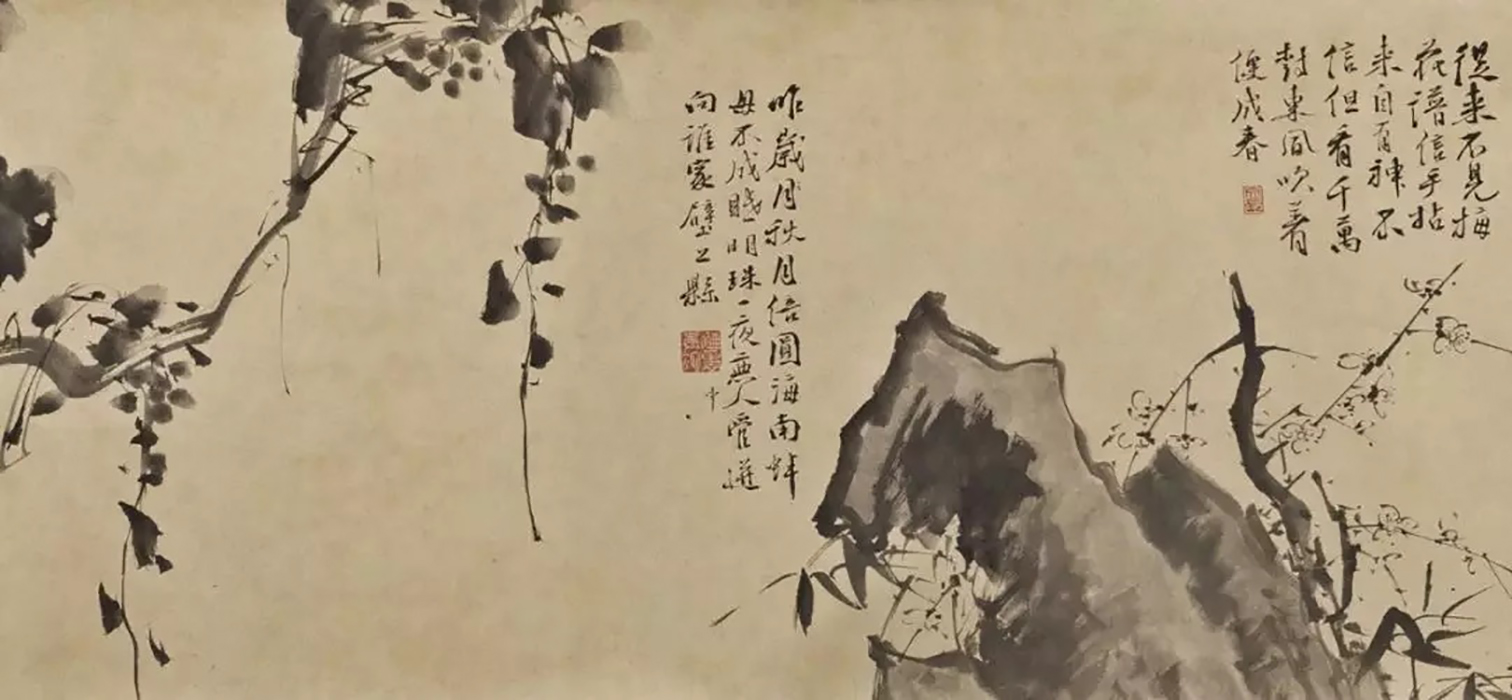 從来不見梅
花譜信手拈
来自有神不
信但看千萬
樹東風吹着
便成春
昨歲月秋月倍圓海南蚌
母不成眠明珠一夜無人管迸
向誰家壁上懸
中